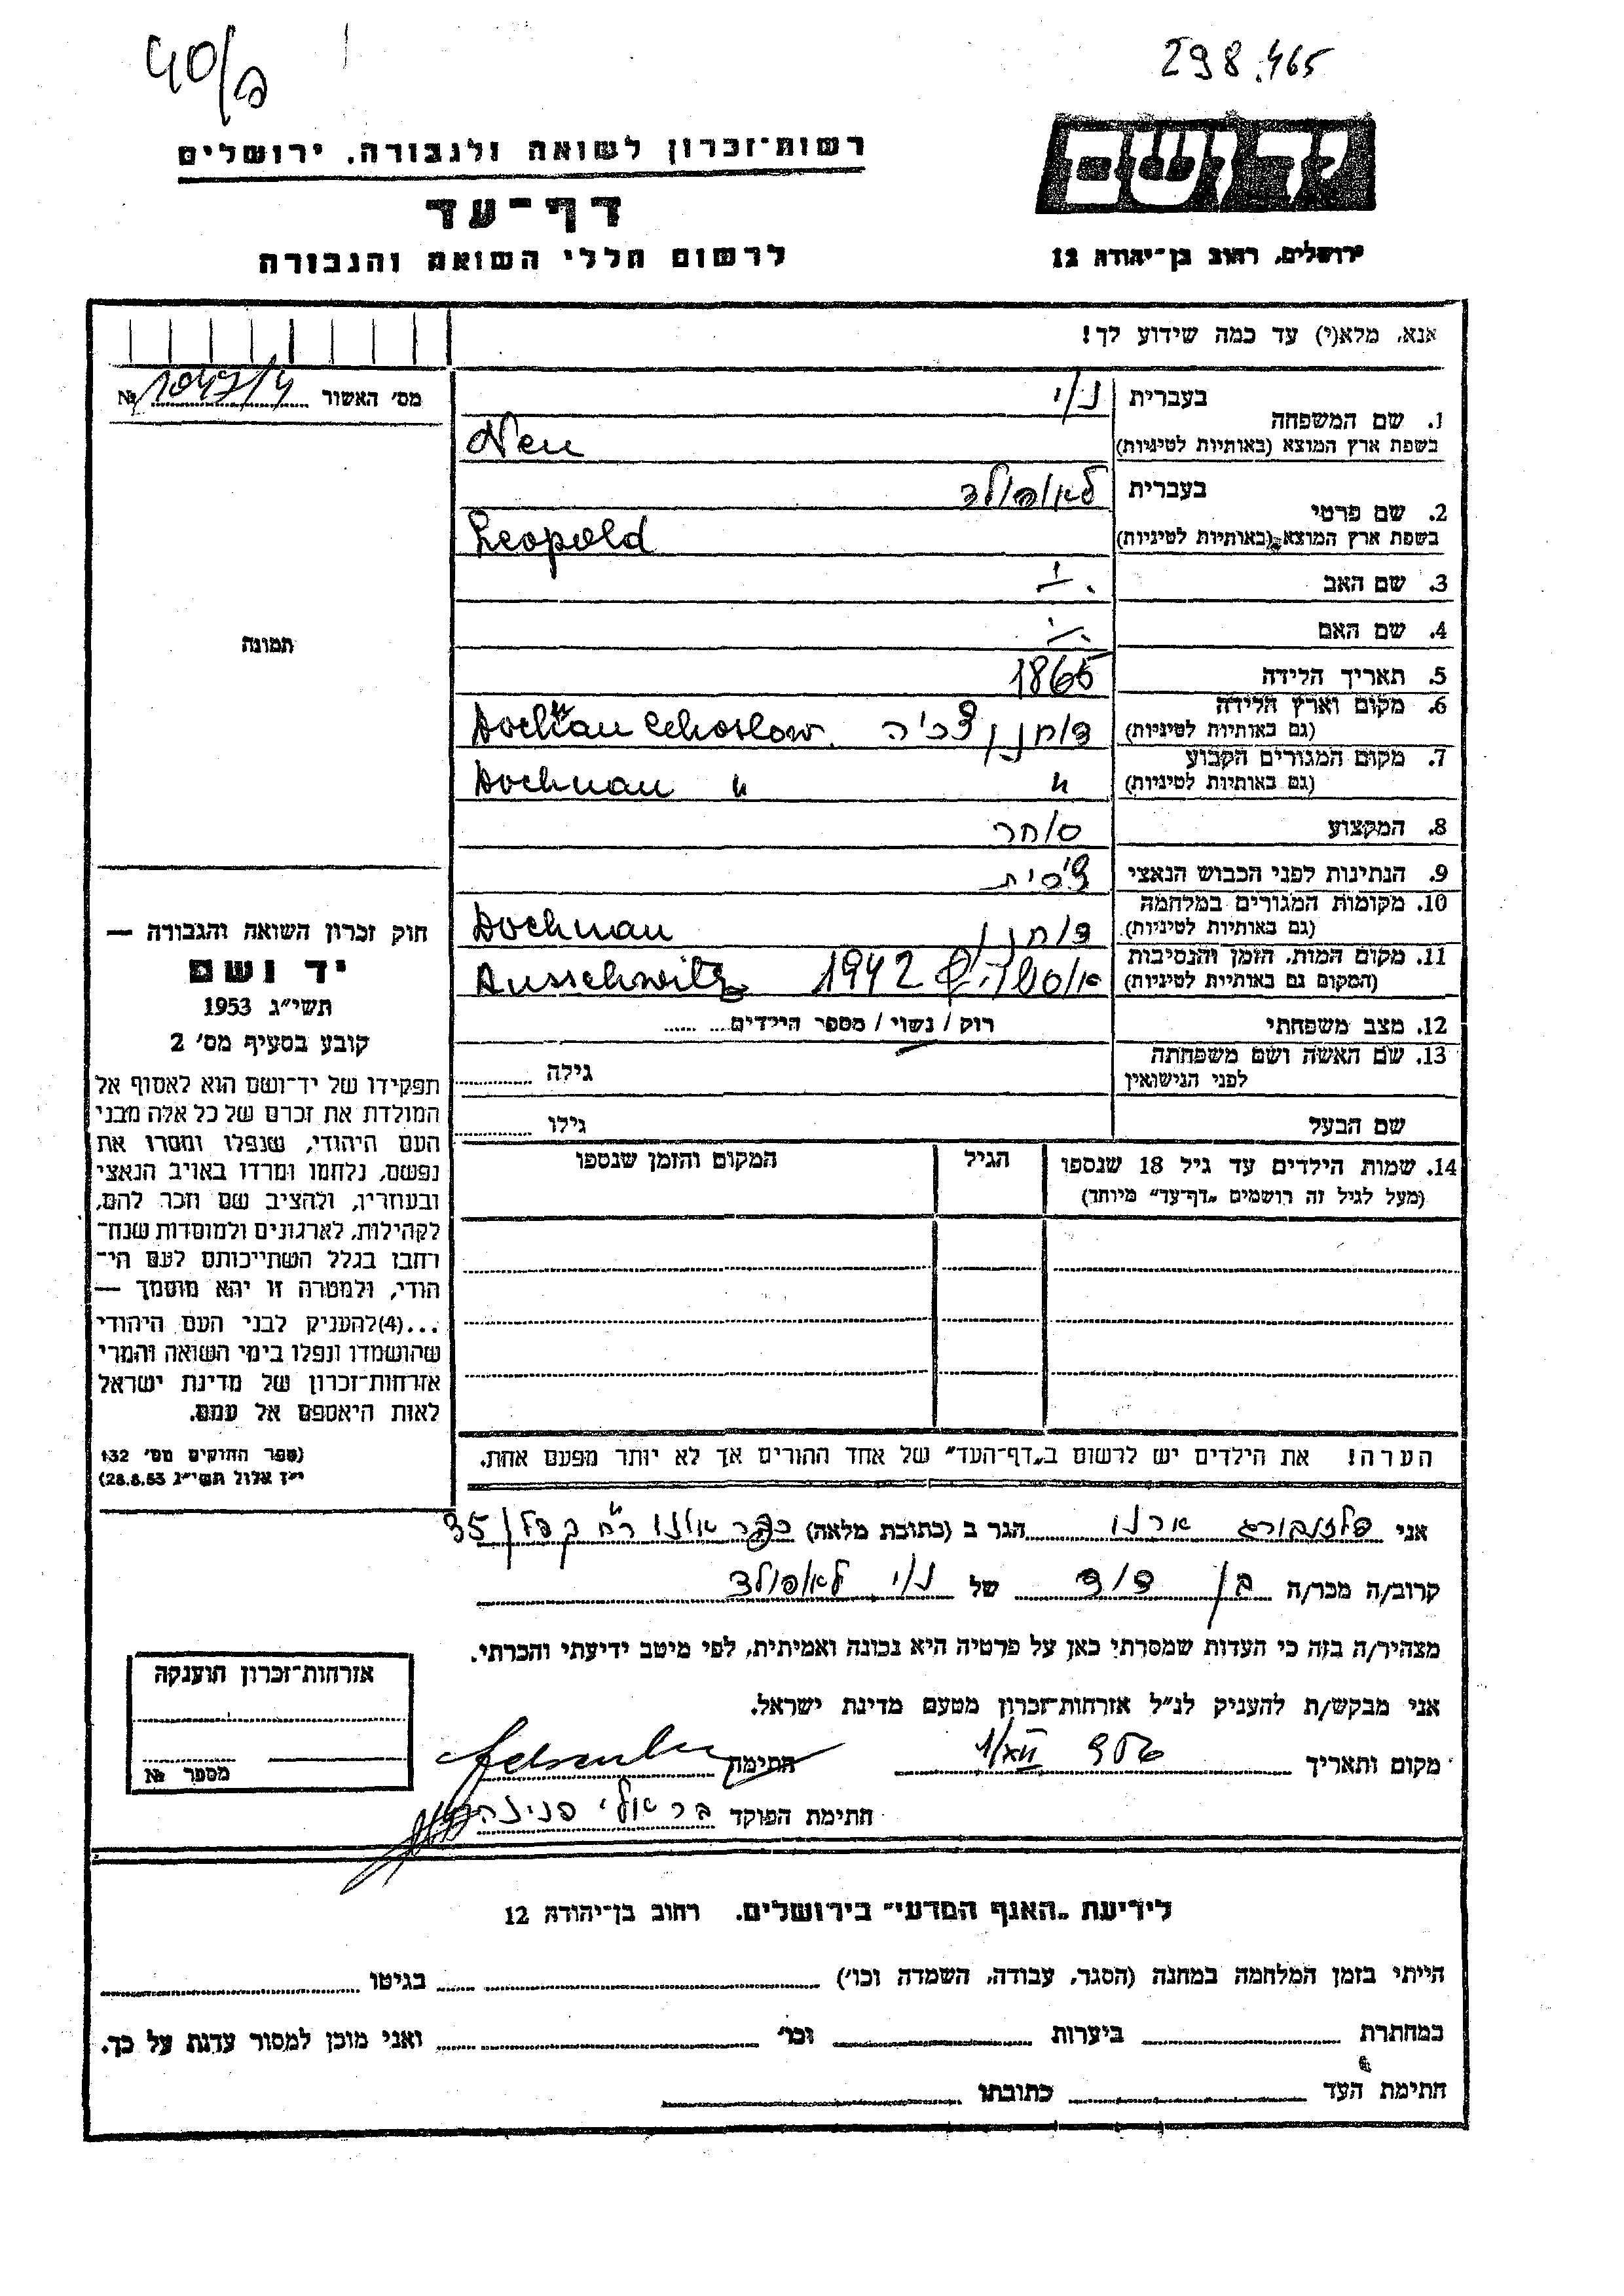 40/פ
298.465
רשות־זכרון לשואה ולגבורה. ירושלים
יד ושם
דף־עד
לרשום חללי השואה והגבורה
ירושלים, רחוב בן־יהודה 12
אנא, מלא(י) עד כמה שידוע לך!
מס' האשור № 1047/4
1. שם המשפחה
בעברית נוי
בשפת ארץ המוצא (באותיות לטיניות) Neu
2. שם פרטי
בעברית לאופולד
בשפת ארץ המוצא (באותיות לטיניות) Leopold
3. שם האב
4. שם האם
5. תאריך הלידה 1865
6. מקום וארץ הלידה
(גם באותיות לטיניות) דוחנן צכיה
7. מקום המגורים הקבוע
(גם באותיות לטיניות) " Dochnau "
8. המקצוע סוחר
9. הנתינות לפני הכבוש הנאצי צ'כית
10. מקומות המגורים במלחמה
(גם באותיות לטיניות) דוחנן Dochnau
11. מקום המות, הזמן והנסיבות
(המקום גם באותיות לטיניות) 1942 Ausschwitz
12. מצב משפחתי רוק / נשוי / מספר הילדים
13. שם האשה ושם משפחתה
לפני הנישואין
גילה
שם הבעל
גילו
14. שמות הילדים עד גיל 18 שנספו
(מעל לגיל זה רושמים „דף־עד” מיוחד)
הגיל
המקום והזמן שנספו
הערה! את הילדים יש לרשום ב„דף־העד” של אחד ההורים אך לא יותר מפעם אחת.
תמונה
חוק זכרון השואה והגבורה —
יד ושם
תשי״ג 1953
קובע בסעיף מס' 2
תפקידו של יד־ושם הוא לאסוף אל
המולדת את זכרם של כל אלה מבני
העם היהודי, שנפלו ומסרו את
נפשם, נלחמו ומרדו באויב הנאצי
ובעוזריו, ולהציב שם וזכר להם,
לקהילות, לארגונים ולמוסדות שנח־
רחבו בגלל השתייכותם לעם הי־
הודי, ולמטרה זו יהא מוסמך —
...(4)להעניק לבני העם היהודי
שהושמדו ונפלו בימי השואה והמרי
אזרחות־זכרון של מדינת ישראל
לאות היאספם אל עמם.
(ספר החוקים מס' 132
י״ז אלול תשי״ג 28.8.53)
אני פלזנבורג ארנו הגר ב (כתובת מלאה) כפר אונו רח' קפלן 35
קרוב/ה מכר/ה בן דוד של נוי לאופולד
מצהיר/ה בזה כי העדות שמסרתי כאן על פרטיה היא נכונה ואמיתית, לפי מיטב ידיעתי והכרתי.
אני מבקש/ת להעניק לנ״ל אזרחות־זכרון מטעם מדינת ישראל.
מקום ותאריך 956 1/XII חתימת
חתימת הפוקד בראלי פנינה
אזרחות־זכרון הוענקה
מספר №
לידיעת „האגף המדעי” בירושלים. רחוב בן־יהודה 12
הייתי בזמן המלחמה במחנה (הסגר, עבודה, השמדה וכו') בגיטו
במחתרת ביערות וכו' ואני מוכן למסור עדות על כך.
חתימת העד כתובתו